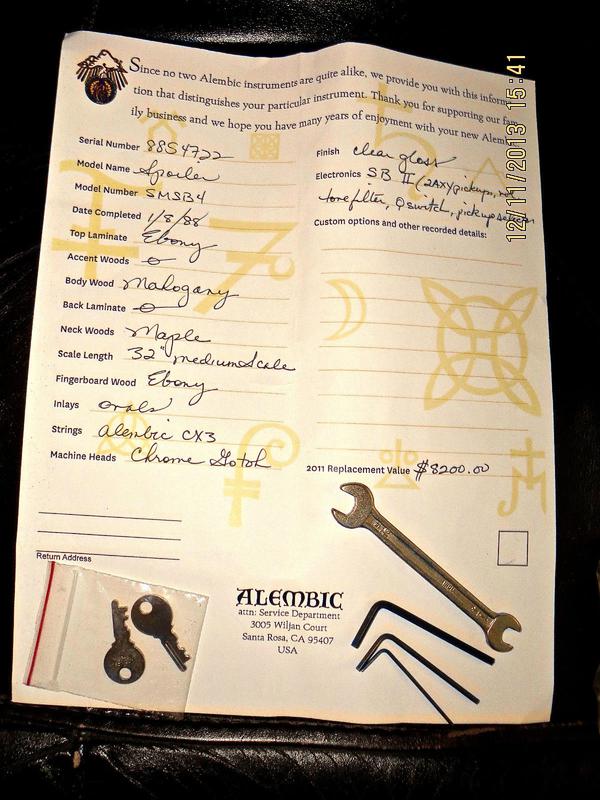 Since no two Alembic instruments are quite alike, we provide you with this informa
tion that distinguishes your particular instrument. Thank you for supporting our fam
ily business and we hope you have many years of enjoyment with your new Alem
Serial Number 88S4722
Model Name Spoiler
Model Number SMSB4
Date Completed 1/8/88
Top Laminate Ebony
Accent Woods
Body Wood Mahogany
Back Laminate
Neck Woods Maple
Scale Length 32" medium Scale
Fingerboard Wood Ebony
Inlays ovals
Strings Alembic CX3
Machine Heads Chrome Gotoh
Finish clear gloss
Electronics SB II (2AXY pickups, vol
tone filter, Q switch, pickup selector
Custom options and other recorded details:
2011 Replacement Value $8200.00
Return Address
ALEMBIC
attn: Service Department
3005 Wiljan Court
Santa Rosa, CA 95407
USA
12/11/2013 15:41